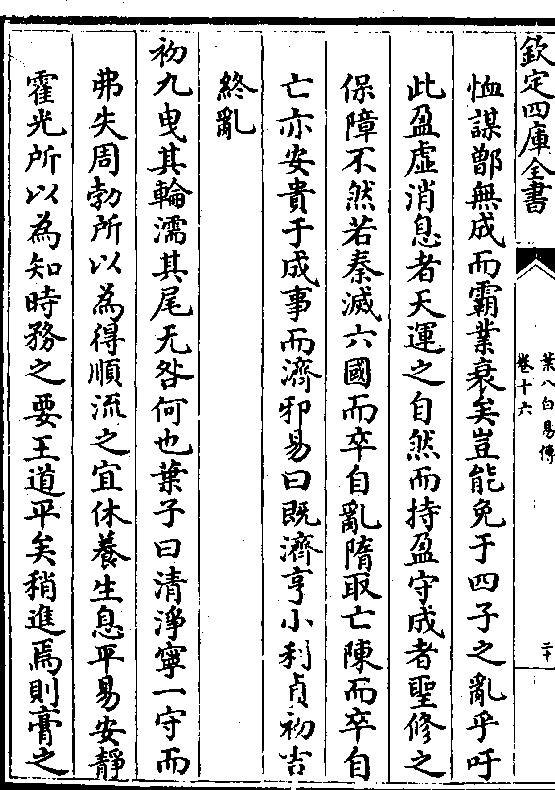 欽定四庫全書
葉八白易傳
卷十六
二十
恤謀鄫無成而霸業衰矣豈能免于四子之亂乎吁
此盈虛消息者天運之自然而持盈守成者聖修之
保障不然若秦滅六國而卒自亂隋取亡陳而卒自
亡亦安貴于成事而濟邪易曰既濟亨小利貞初吉
終亂
初九曳其輪濡其尾无咎何也葉子曰清淨寧一守而
弗失周勃所以為得順流之宜休養生息平易安靜
霍光所以為知時務之要王道平矣稍進焉則膏之